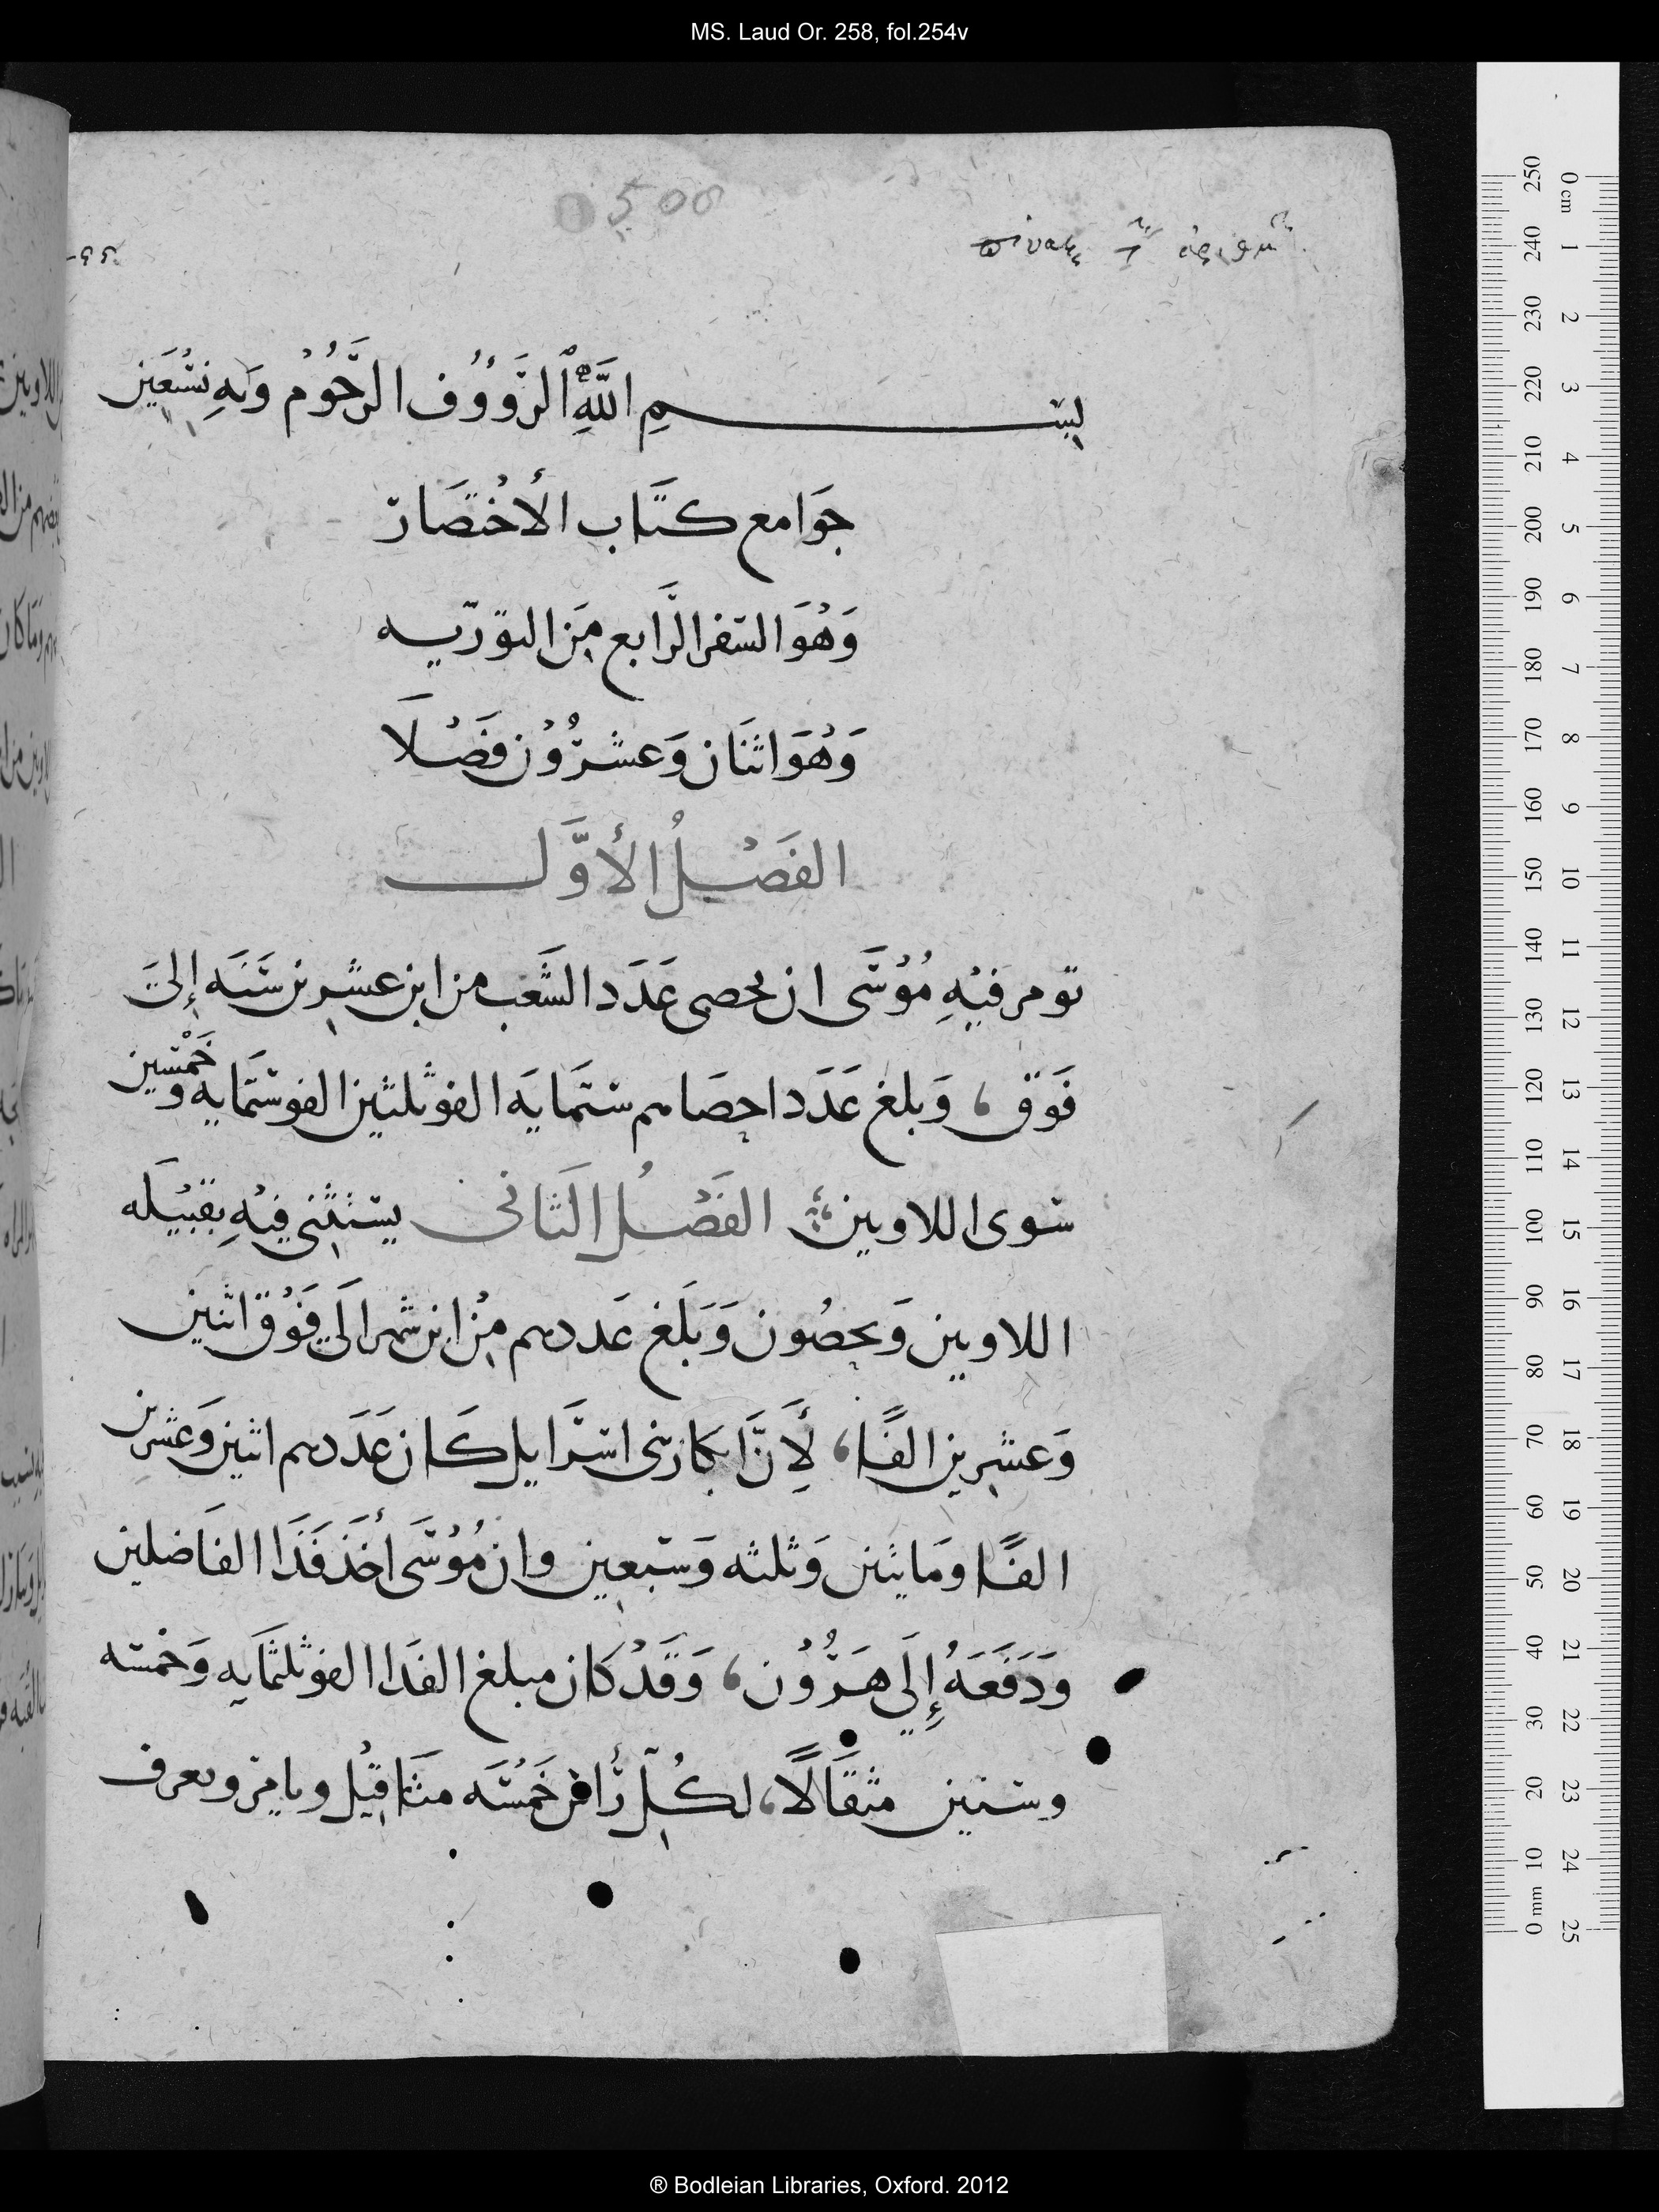 MS. Laud Or. 258, fol.254v
500
بِسْمِ اللَّهِ الرَّوُوُف الرَّحُوُم وَبهِ نَسْتَعِين
جَوَامع كتَاب الأخْتصَار
وَهُوَ السفر الرَّابع مِن التوريه
وَهُوَ اثنَان وَعشرُوُن فَصْلَا
الفَصْلُ الأوَّل
يومر فيْهِ مُوُسَى ان يحصى عَدَد الشَعب من ابن عشرين سَنَه إلىَ
فَوَق، وَبلغ عَدَد احصَاهم ستمايَه الف وثلثين الف وستمايه وخَمْسين
سوى اللاوين الفَصْلُ الثَانى يستثنى فيْهِ بقبيْلَه
اللاوين وَيحصُون وَبَلَغ عَددهم مِنْ ابن شهر إلَى فَوْق اثنين
وَعشرين الفًا، لأَنَّ ابكار بنى اسرَايل كَان عَدَدهم اثنين وَعشرين
الفًا ومَايتين وَثلثه وَسبعين وان مُوُسَى أخَذ فَدَا الفَاضلين
وَدَفَعَهُ إلَى هَرُوُن، وَقَدْ كان مبلغ الفَدا الف وثلثمَايه وَخمسه
وستين مثقَالًا، لكُلّ رأس خَمْسَه مثاقيْل ويامر ويعرف
0 cm 1 2 3 4 5 6 7 8 9 10 11 12 13 14 15 16 17 18 19 20 21 22 23 24 25
250 240 230 220 210 200 190 180 170 160 150 140 130 120 110 100 90 80 70 60 50 40 30 20 10 0 mm
® Bodleian Libraries, Oxford. 2012